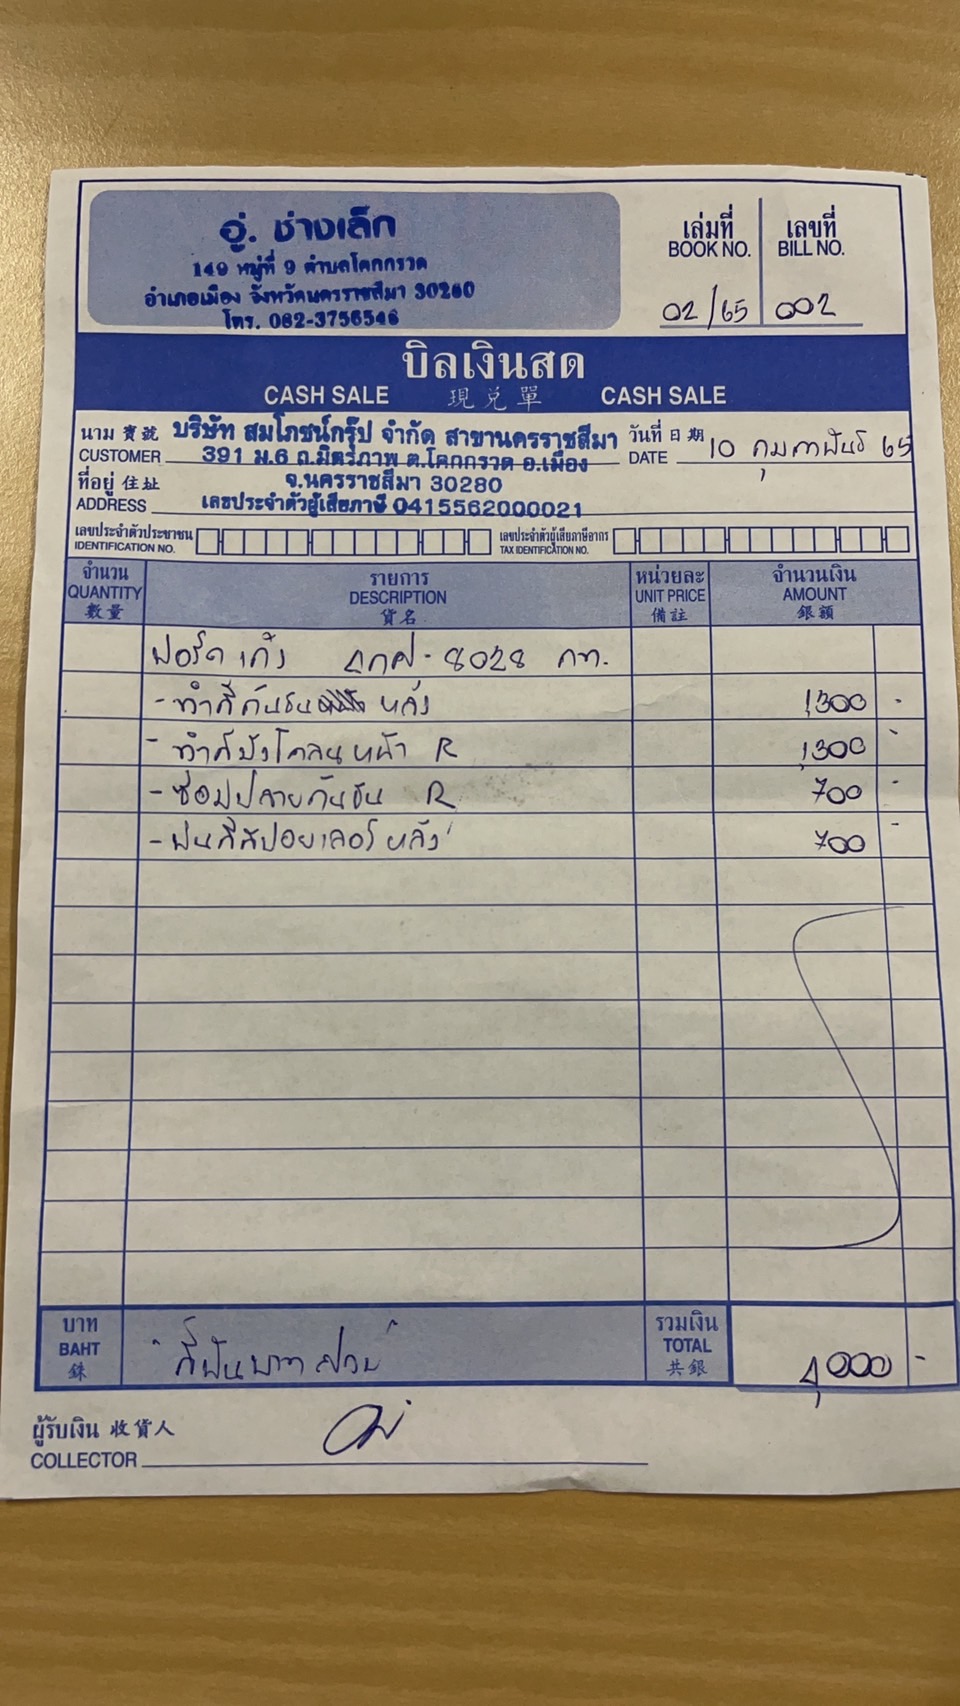 อู่. ช่างเล็ก
149 หมู่ที่ 9 ตำบลโคกกรวด
อำเภอเมือง จังหวัดนครราชสีมา 30280
โทร. 082-3756546
เล่มที่ เลขที่
BOOK NO. BILL NO.
02/65 002
บิลเงินสด
CASH SALE 現兌單 CASH SALE
นาม 寶號 บริษัท สมโภชน์กรุ๊ป จำกัด สาขานครราชสีมา วันที่ 日期 10 กุมภาพันธ์ 65
CUSTOMER 391 ม.6 ถ.มิตรภาพ ต.โคกกรวด อ.เมือง DATE
ที่อยู่ 住址 จ.นครราชสีมา 30280
ADDRESS เลขประจำตัวผู้เสียภาษี 0415562000021
เลขประจำตัวประชาชน เลขประจำตัวผู้เสียภาษีอากร
IDENTIFICATION NO. TAX IDENTIFICATION NO.
จำนวน รายการ หน่วยละ จำนวนเงิน
QUANTITY DESCRIPTION UNIT PRICE AMOUNT
數量 貨名 備註 銀額
ฟอร์ด เก๋ง 8028 กท.
- ทำสีกันชน หลัง 1,300 -
- ทำสีบังโคลนหน้า R 1,300 -
- ซ่อมปลายกันชน R 700 -
- พ่นสีสปอยเลอร์หลัง 700 -
บาท รวมเงิน
BAHT สี่พันบาทถ้วน TOTAL 4,000 -
銖 共銀
ผู้รับเงิน 收貨人
COLLECTOR